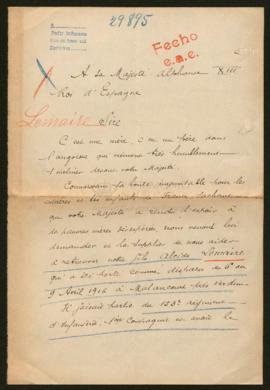 29895
Fecho
e.a.e.
A Sa Majesté Alphonse XIII
Roi d'Espagne
Lemaire Sire
C'est une mère, c'est un père dans
l'angoisse qui viennent très humblement
s'incliner devant votre Majesté.
Connaissant la bonté inépuisable pour les
mères et les enfants de France, sachant
que votre Majesté a rendu l'espoir à
de pauvres mères désespérées, nous venons lui
demander et la supplier de nous aider
à retrouver notre fils Aloïse Lemaire
qui a été porté comme disparu du 6 au
9 Avril 1916 à Malancourt près Verdun
Il faisait partie du 153e régiment
d'Infanterie, Compagnie